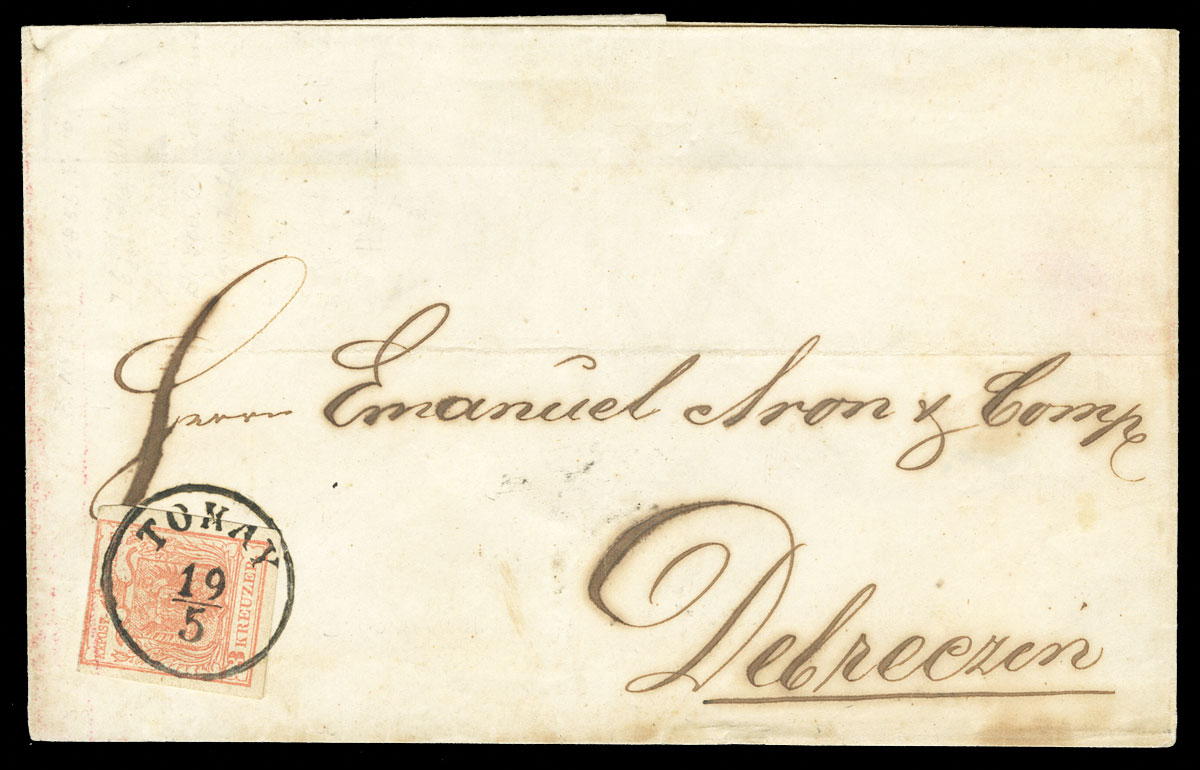 Herrn Emanuel Aron & Comp
Debreczin
TOKAY
19
5
3 KREUZER